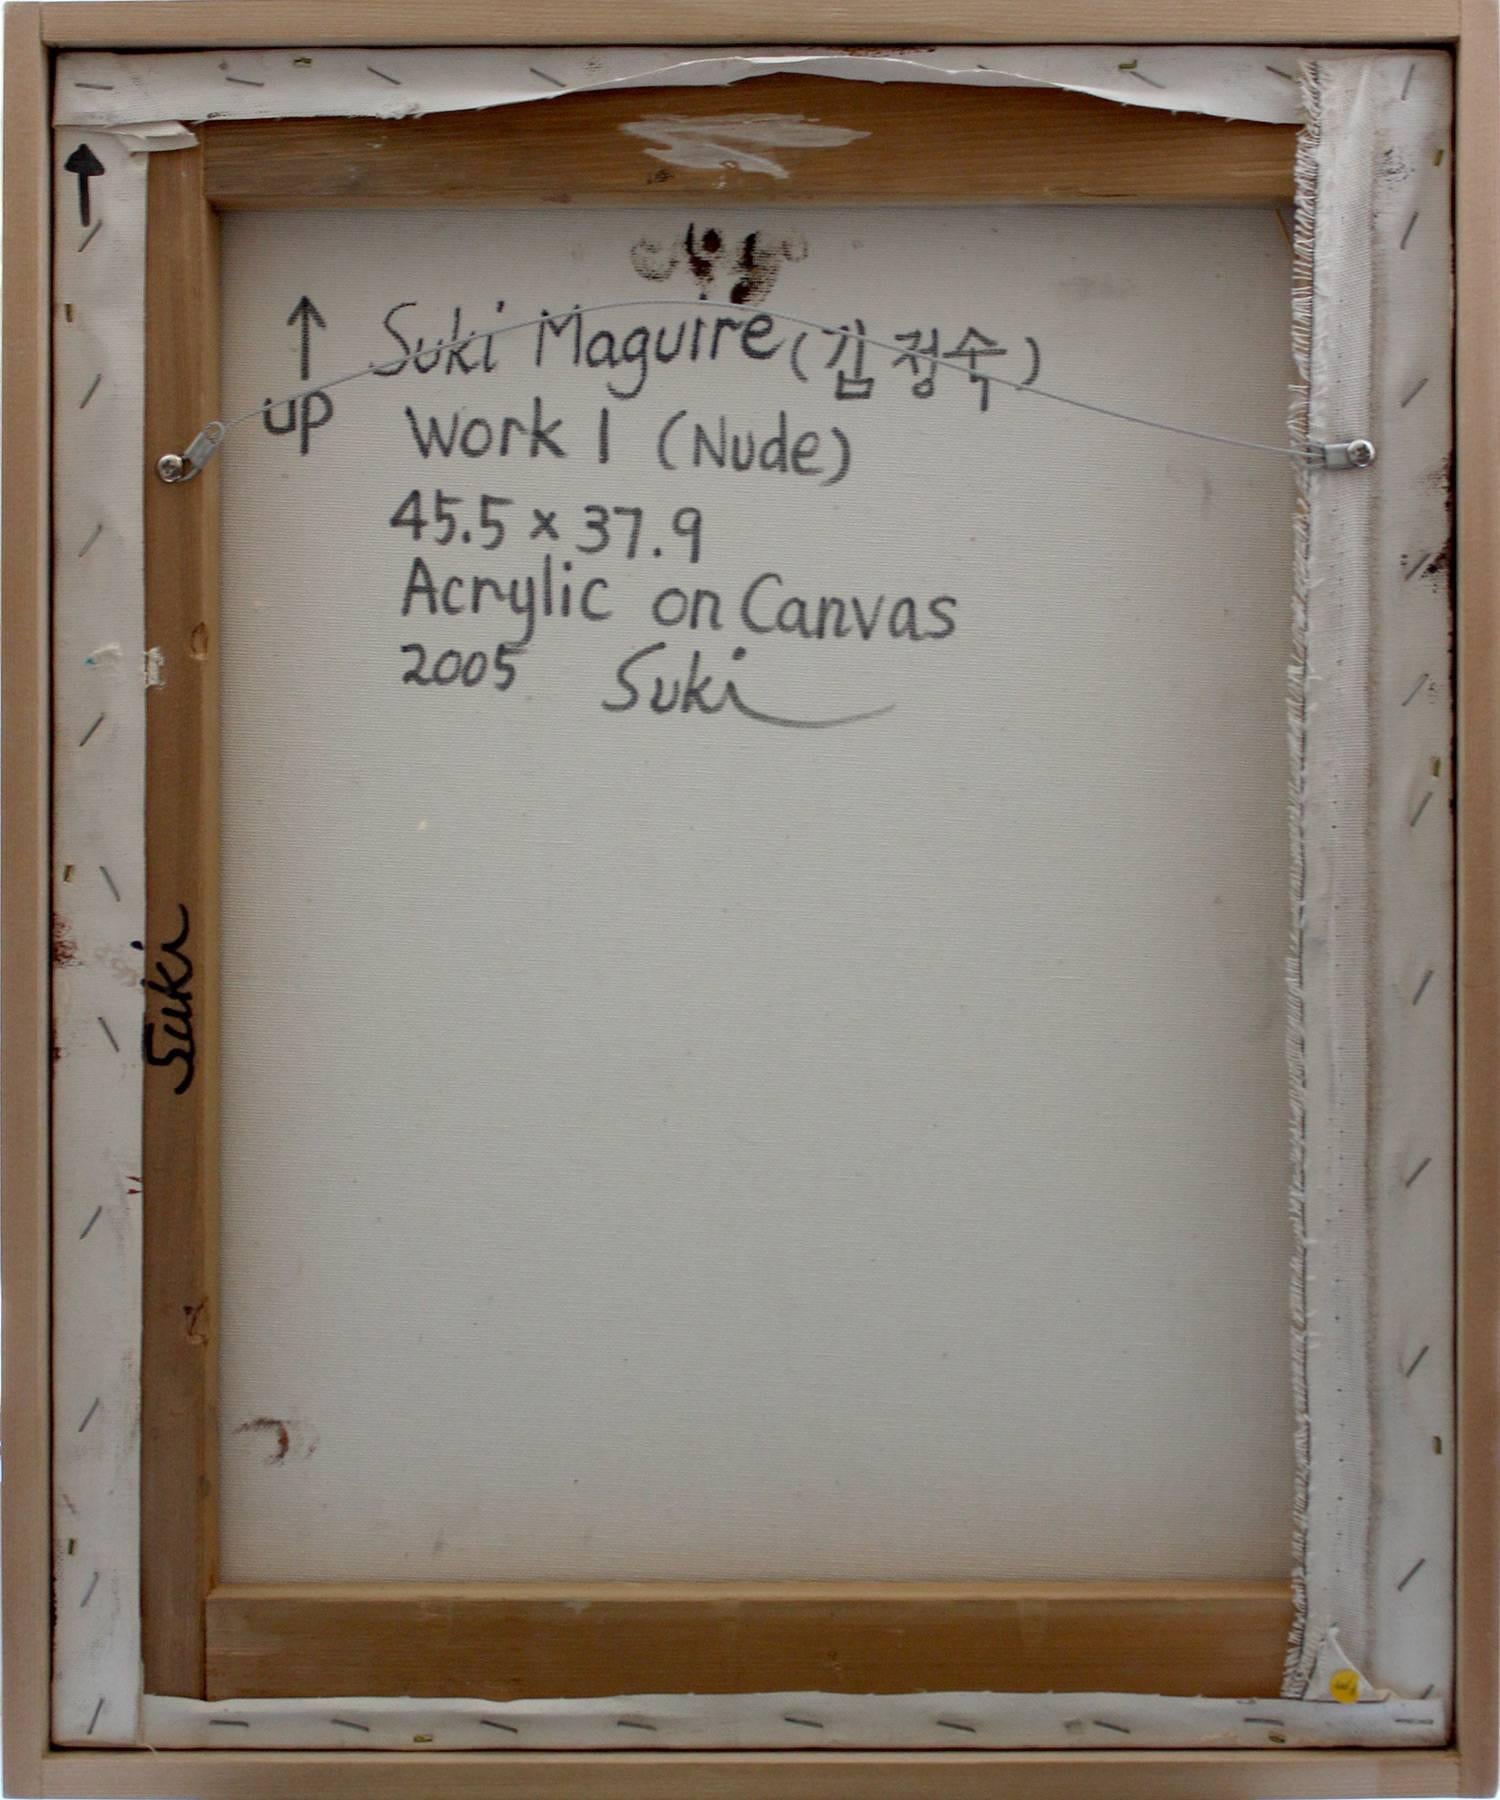 ↑ Suki Maguire (김정숙)
up Work 1 (Nude)
45.5 × 37.9
Acrylic on Canvas
2005 Suki
Suki